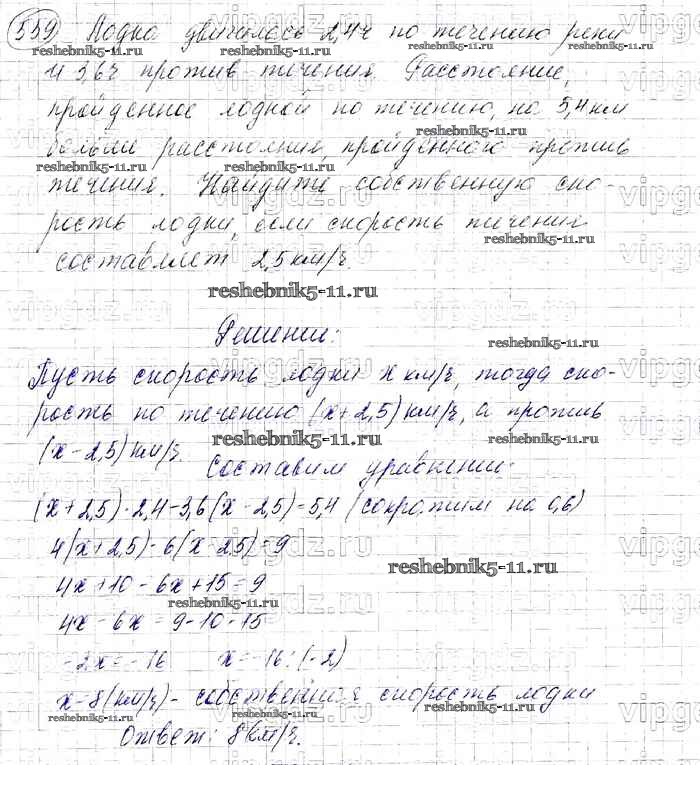 559 Лодка двигалась 2,4ч по течению реки
reshebnik5-11.ru reshebnik5-11.ru reshebnik5-11.ru
и 3,6ч против течения. Расстояние,
пройденное лодкой по течению, на 5,4 км
reshebnik5-11.ru
больше расстояния, пройденного против
reshebnik5-11.ru reshebnik5-11.ru
течения. Найдите собственную ско-
рость лодки, если скорость течения
reshebnik5-11.ru
составляет 2,5 км/ч.
reshebnik5-11.ru
Решение:
reshebnik5-11.ru
Пусть скорость лодки x км/ч, тогда ско-
рость по течению (x+2,5) км/ч, а против
reshebnik5-11.ru reshebnik5-11.ru
(x-2,5) км/ч. Составим уравнение:
(x+2,5)·2,4-3,6(x-2,5)=5,4 (сократим на 0,6)
4(x+2,5)-6(x-2,5)=9
reshebnik5-11.ru
4x+10-6x+15=9
reshebnik5-11.ru
4x-6x=9-10-15
-2x=-16 x=-16:(-2)
x=8(км/ч)- собственная скорость лодки
reshebnik5-11.ru reshebnik5-11.ru reshebnik5-11.ru
Ответ: 8 км/ч.